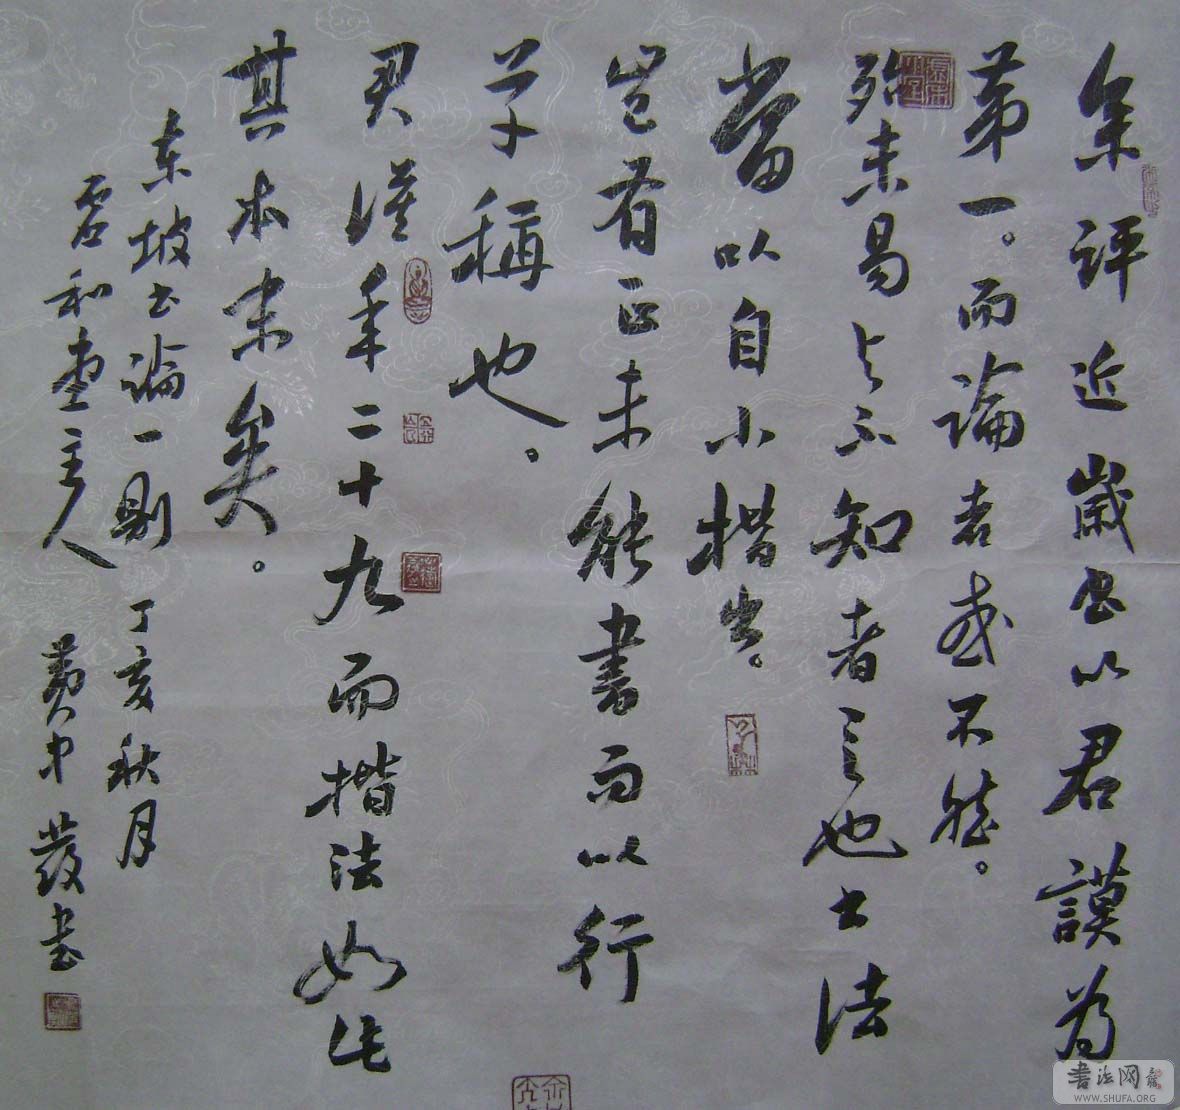 余評近歲書以君謨為
第一。而論者或不然。
殆未易与不知者言也書法
當以自小楷出。
豈有正未能書而以行
草稱也。
君謨年二十九而楷法如此
其本末矣。
東坡書論一則 丁亥秋月
和堂主人 黄中發書
書法网
WWW.SHUFA.ORG